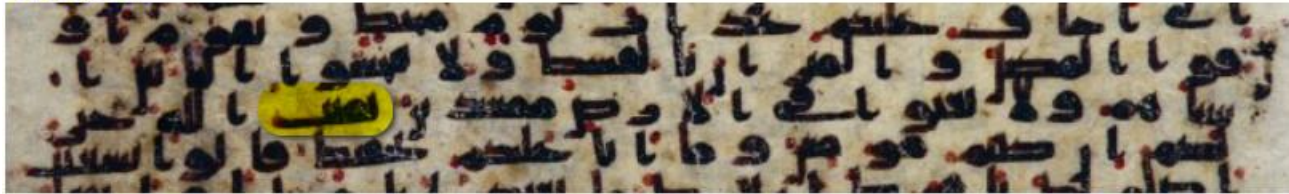 انى اخاف عليكم عذاب يوم محيط و يقوم او
فوا المكيال و الميزان بالقسط و لا تبخسوا الناس ا
شياهم و لا تعثوا فى الارض مفسدين بقيت الله خير
لكم ان كنتم مومنين و ما انا عليكم بحفيظ قالوا يشعيب